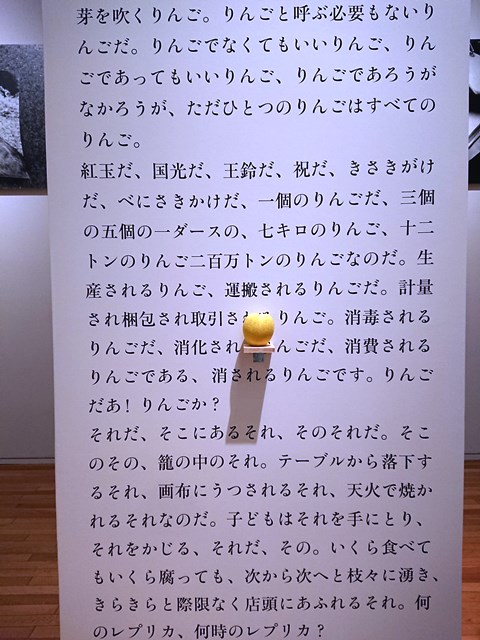 芽を吹くりんご。りんごと呼ぶ必要もないり
んごだ。りんごでなくてもいいりんご、りん
ごであってもいいりんご、りんごであろうが
なかろうが、ただひとつのりんごはすべての
りんご。
紅玉だ、国光だ、王鈴だ、祝だ、きさきがけ
だ、べにさきかけだ、一個のりんごだ、三個
の五個の一ダースの、七キロのりんご、十二
トンのりんご二百万トンのりんごなのだ。生
産されるりんご、運搬されるりんごだ。計量
され梱包され取引さ りんご。消毒される
りんごだ、消化され んごだ、消費される
りんごである、消されるりんごです。りんご
だあ！りんごか？
それだ、そこにあるそれ、そのそれだ。そこ
のその、籠の中のそれ。テーブルから落下す
るそれ、画布にうつされるそれ、天火で焼か
れるそれなのだ。子どもはそれを手にとり、
それをかじる、それだ、その。いくら食べて
もいくら腐っても、次から次へと枝々に湧き、
きらきらと際限なく店頭にあふれるそれ。何
のレプリカ、何時のレプリカ？